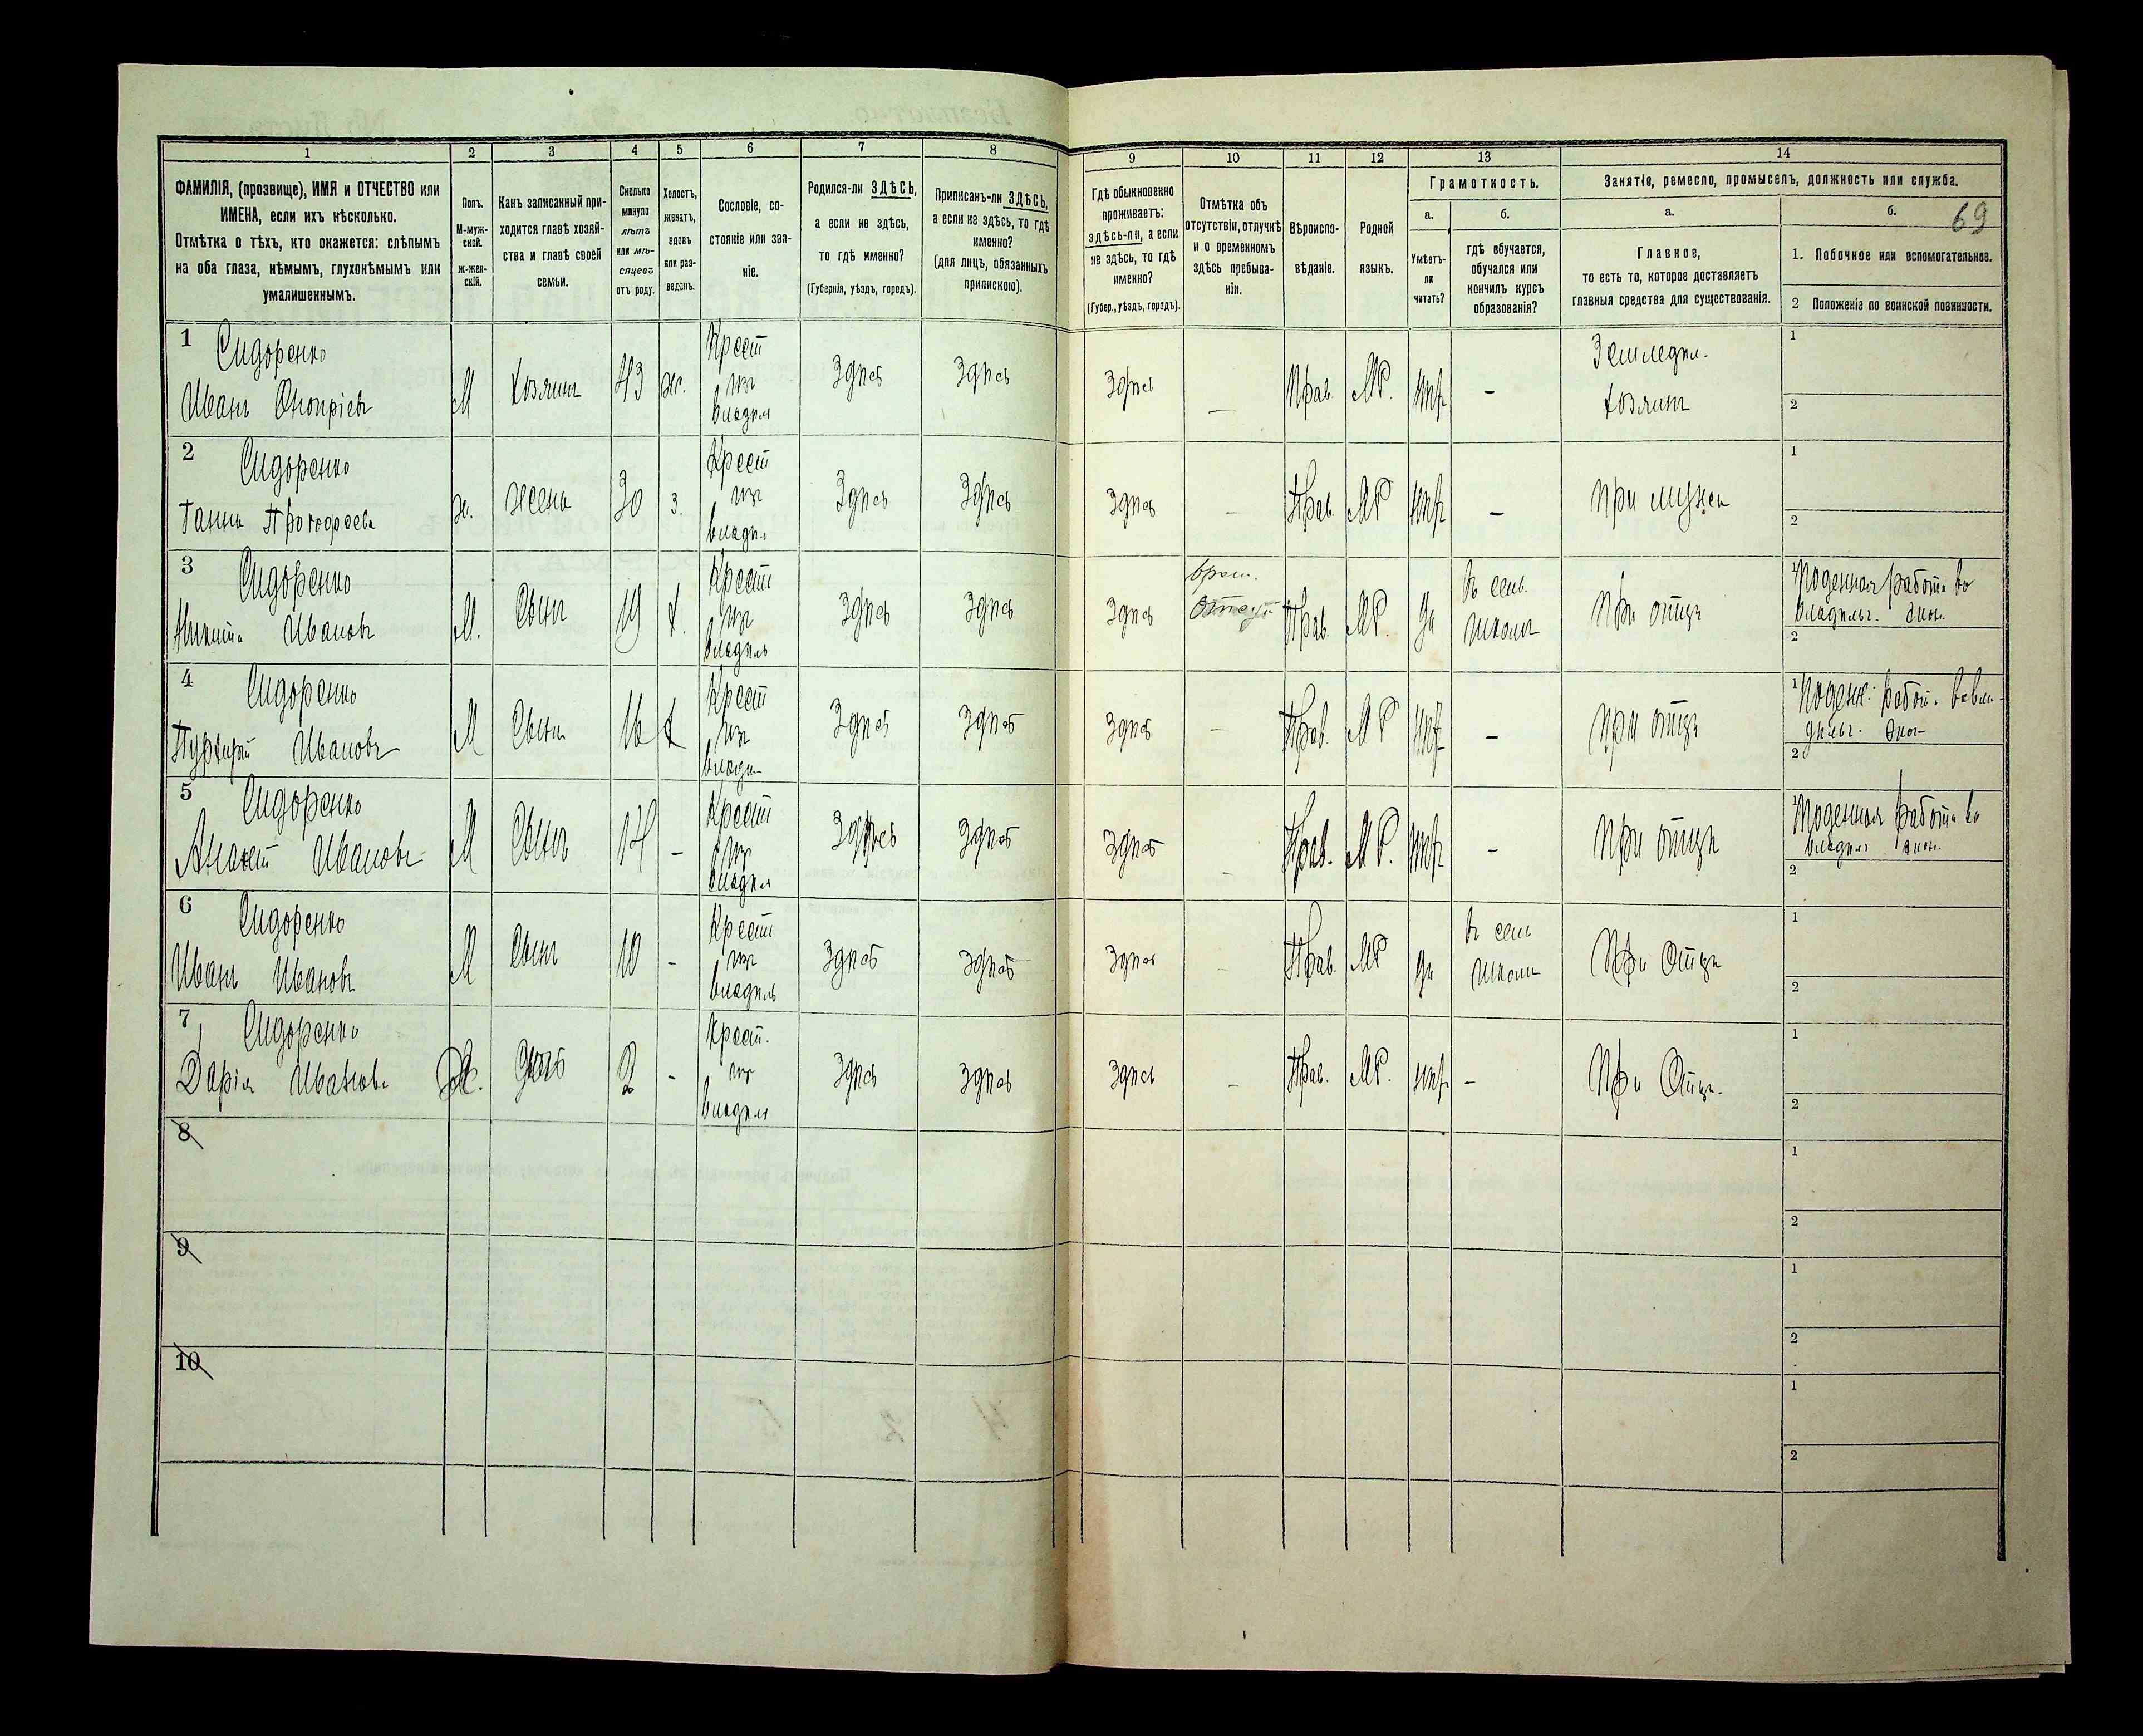 1 2 3 4 5 6 7 8
ФАМИЛІЯ, (прозвище), ИМЯ и ОТЧЕСТВО или
ИМЕНА, если ихъ нѣсколько.
Отмѣтка о тѣхъ, кто окажется: слѣпымъ
на оба глаза, нѣмымъ, глухонѣмымъ или
умалишеннымъ.
Полъ.
М-муж-
ской.
ж-жен-
скій.
Какъ записанный при-
ходится главѣ хозяй-
ства и главѣ своей
семьи.
Сколько
минуло
лѣтъ
или мѣ-
сяцевъ
отъ роду.
Холостъ,
женатъ,
вдовъ
или раз-
веденъ.
Сословіе, со-
стояніе или зва-
ніе.
Родился-ли ЗДѢСЬ,
а если не здѣсь,
то гдѣ именно?
(Губернія, уѣздъ, городъ).
Приписанъ-ли ЗДѢСЬ,
а если не здѣсь, то гдѣ
именно?
(для лицъ, обязанныхъ
припискою).
9 10 11 12 13 14
Гдѣ обыкновенно
проживаетъ:
здѣсь-ли, а если
не здѣсь, то гдѣ
именно?
(Губер., уѣздъ, городъ).
Отмѣтка объ
отсутствіи, отлучкѣ
и о временномъ
здѣсь пребыва-
ніи.
Вѣроиспо-
вѣданіе.
Родной
языкъ.
Грамотность.
а. б.
Умѣетъ-
ли
читать?
гдѣ обучается,
обучался или
кончилъ курсъ
образованія?
Занятіе, ремесло, промыселъ, должность или служба.
а. б. 69
Главное,
то есть то, которое доставляетъ
главныя средства для существованія.
1. Побочное или вспомогательное.
2 Положеніе по воинской повинности.
1 Сидоренко
Иванъ Онопріевъ
М Хозяинъ 43 ж.
Крест
изъ
владѣл
Здѣсь Здѣсь Здѣсь — Прав. МР. нѣт —
Земледѣл.
Хозяинъ
1
2
2 Сидоренко
Ганна
ж. жена 30 з.
Крест
изъ
владѣл
Здѣсь Здѣсь Здѣсь — Прав. МР нѣт — при мужѣ
1
2
3 Сидоренко
Никита Ивановъ
М. Сынъ 19 х.
Крест
изъ
владѣл
Здѣсь Здѣсь Здѣсь
врем.
Прав. МР. да
въ сель.
школѣ
при отцѣ
1 Поденная работа во
владѣльч. экон.
2
4 Сидоренко
Ивановъ
М Сынъ 16 х
Крест
изъ
владѣл
Здѣсь Здѣсь Здѣсь — Прав. МР нѣт — при отцѣ
1 Поденн. работ. во вла-
дѣльч. экон
2
5 Сидоренко
Ивановъ
М Сынъ 14 —
Крест
изъ
владѣл
Здѣсь Здѣсь Здѣсь — Прав. МР. нѣт — при отцѣ
1 Поденная работа во
владѣл экон.
2
6 Сидоренко
Иванъ Ивановъ
М Сынъ 10 —
Крест
изъ
владѣл
Здѣсь Здѣсь Здѣсь — Прав. МР да
въ сель
школѣ
При Отцѣ
1
2
7 Сидоренко
Дарія Иванова
Ж. дочь 2 —
Крест.
изъ
владѣл
Здѣсь Здѣсь Здѣсь — Прав. МР. нѣт — При Отцѣ.
1
2
8
1
2
9
1
2
10
1
2